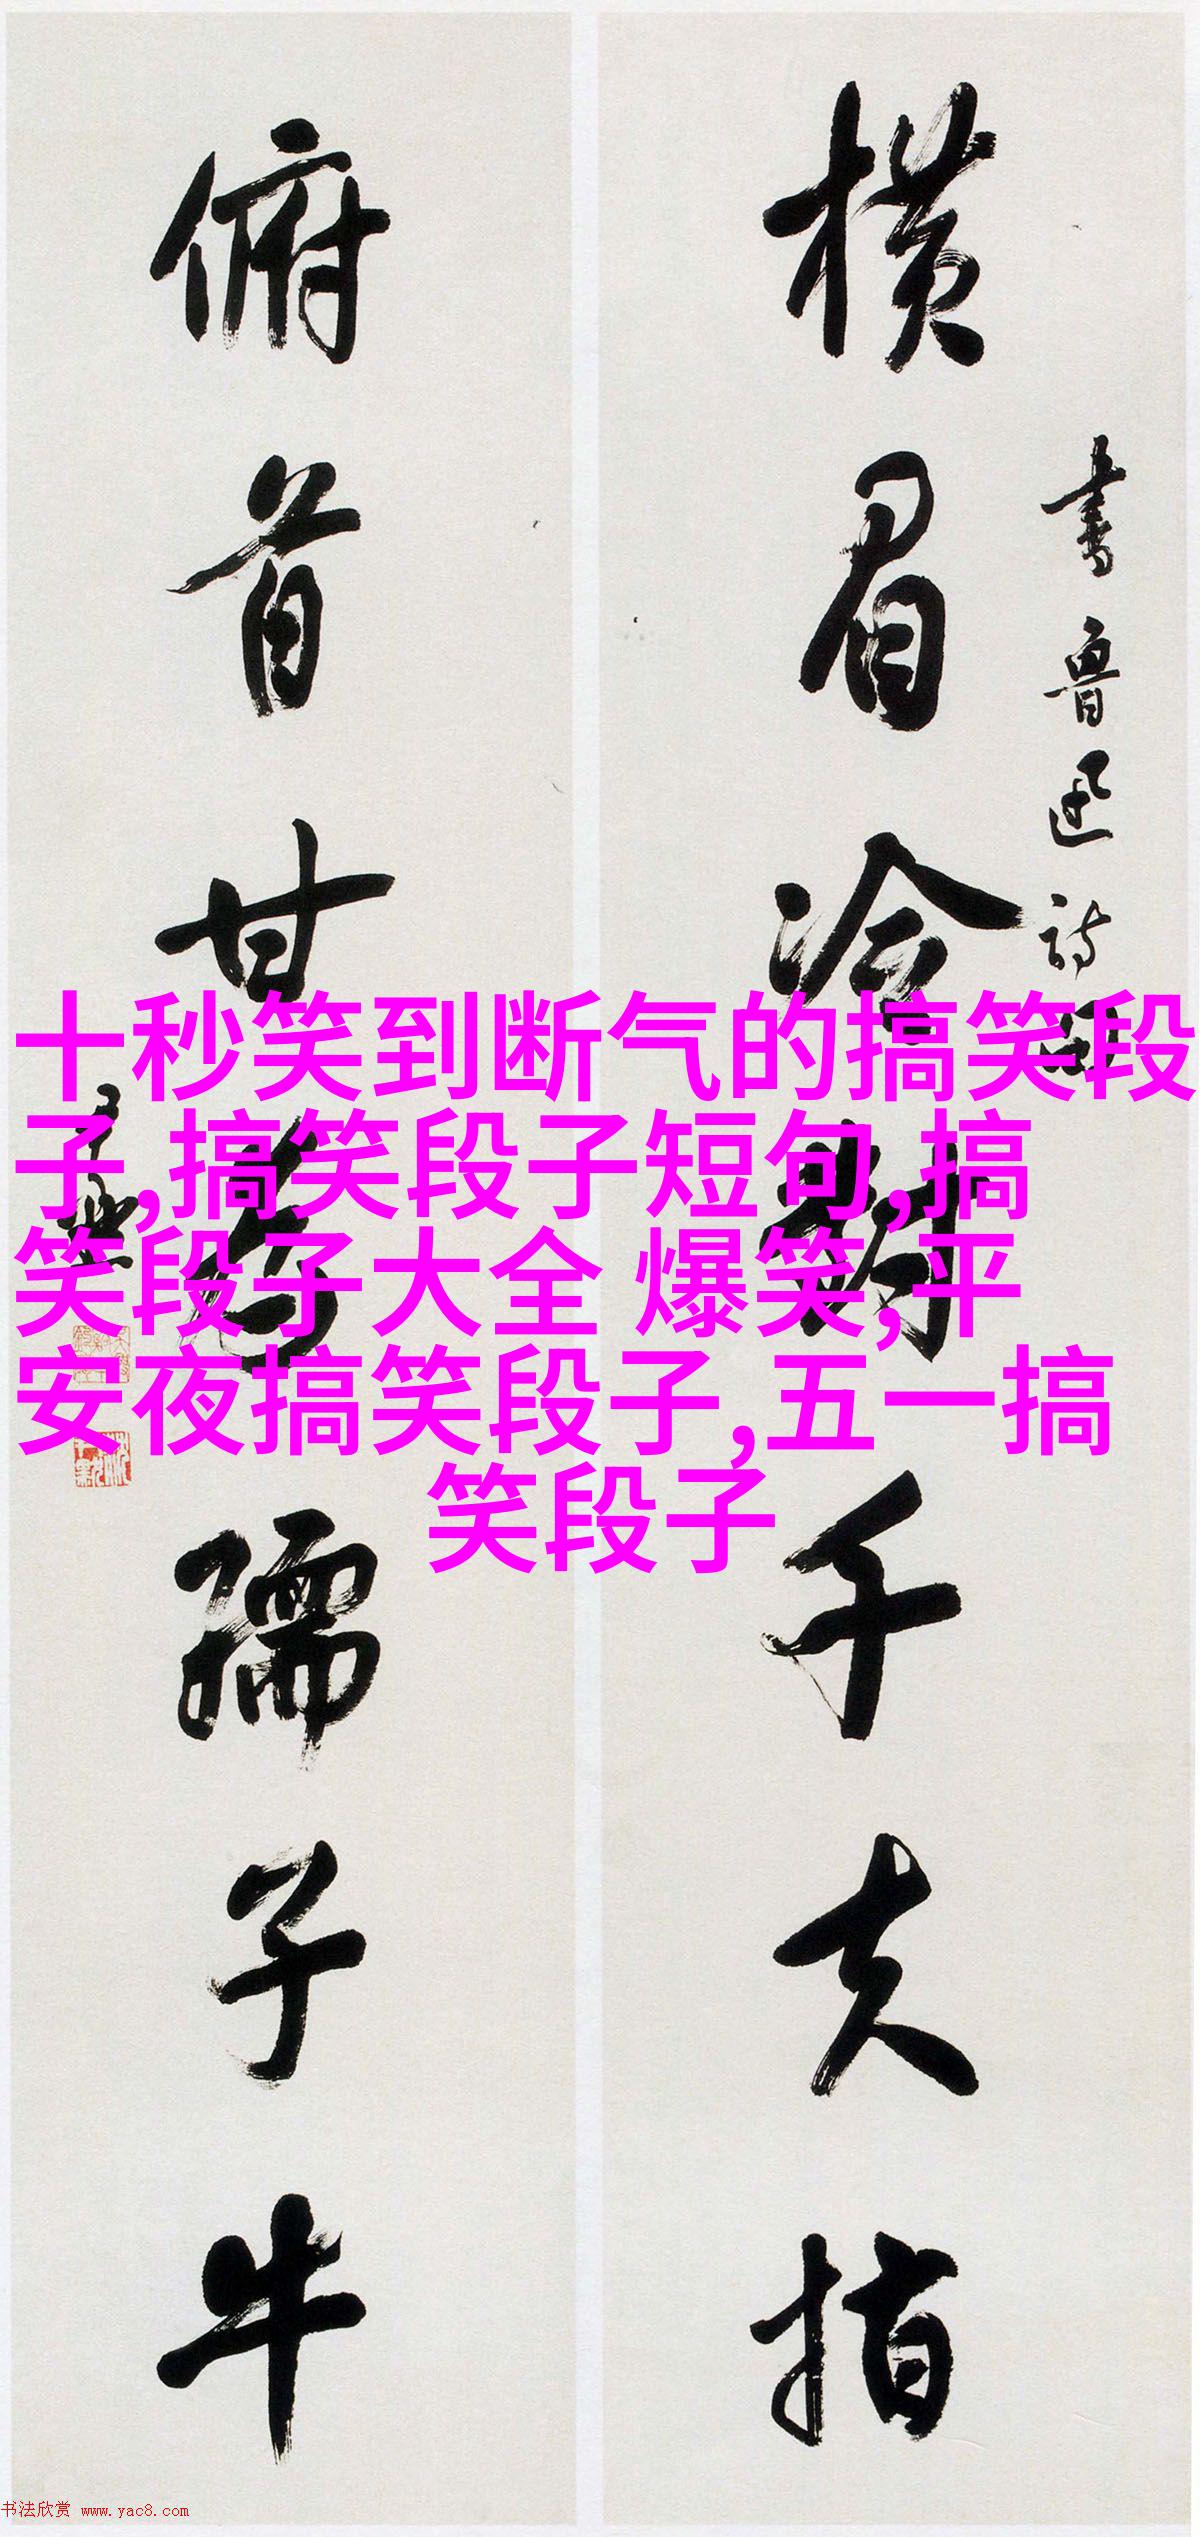 横眉冷对千夫指
书鲁迅诗
俯首甘为孺子牛
十秒笑到断气的搞笑段
子,搞笑段子短句,搞
笑段子大全 爆笑,平
安夜搞笑段子,五一搞
笑段子
书法欣赏 www.yac8.com